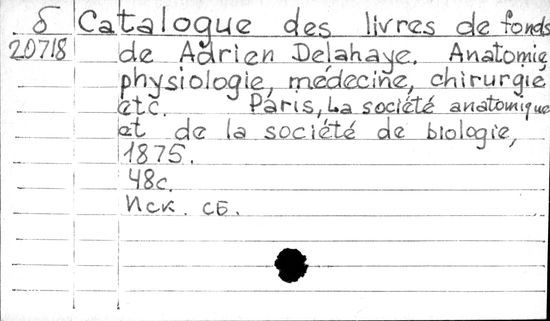 δ Catalogue des livres de fonds
20718 de Adrien Delahaye. Anatomie,
physiologie, médecine, chirurgie
etc. Paris, La société anatomique
et de la société de biologie,
1875.
48c.
Иск. сб.